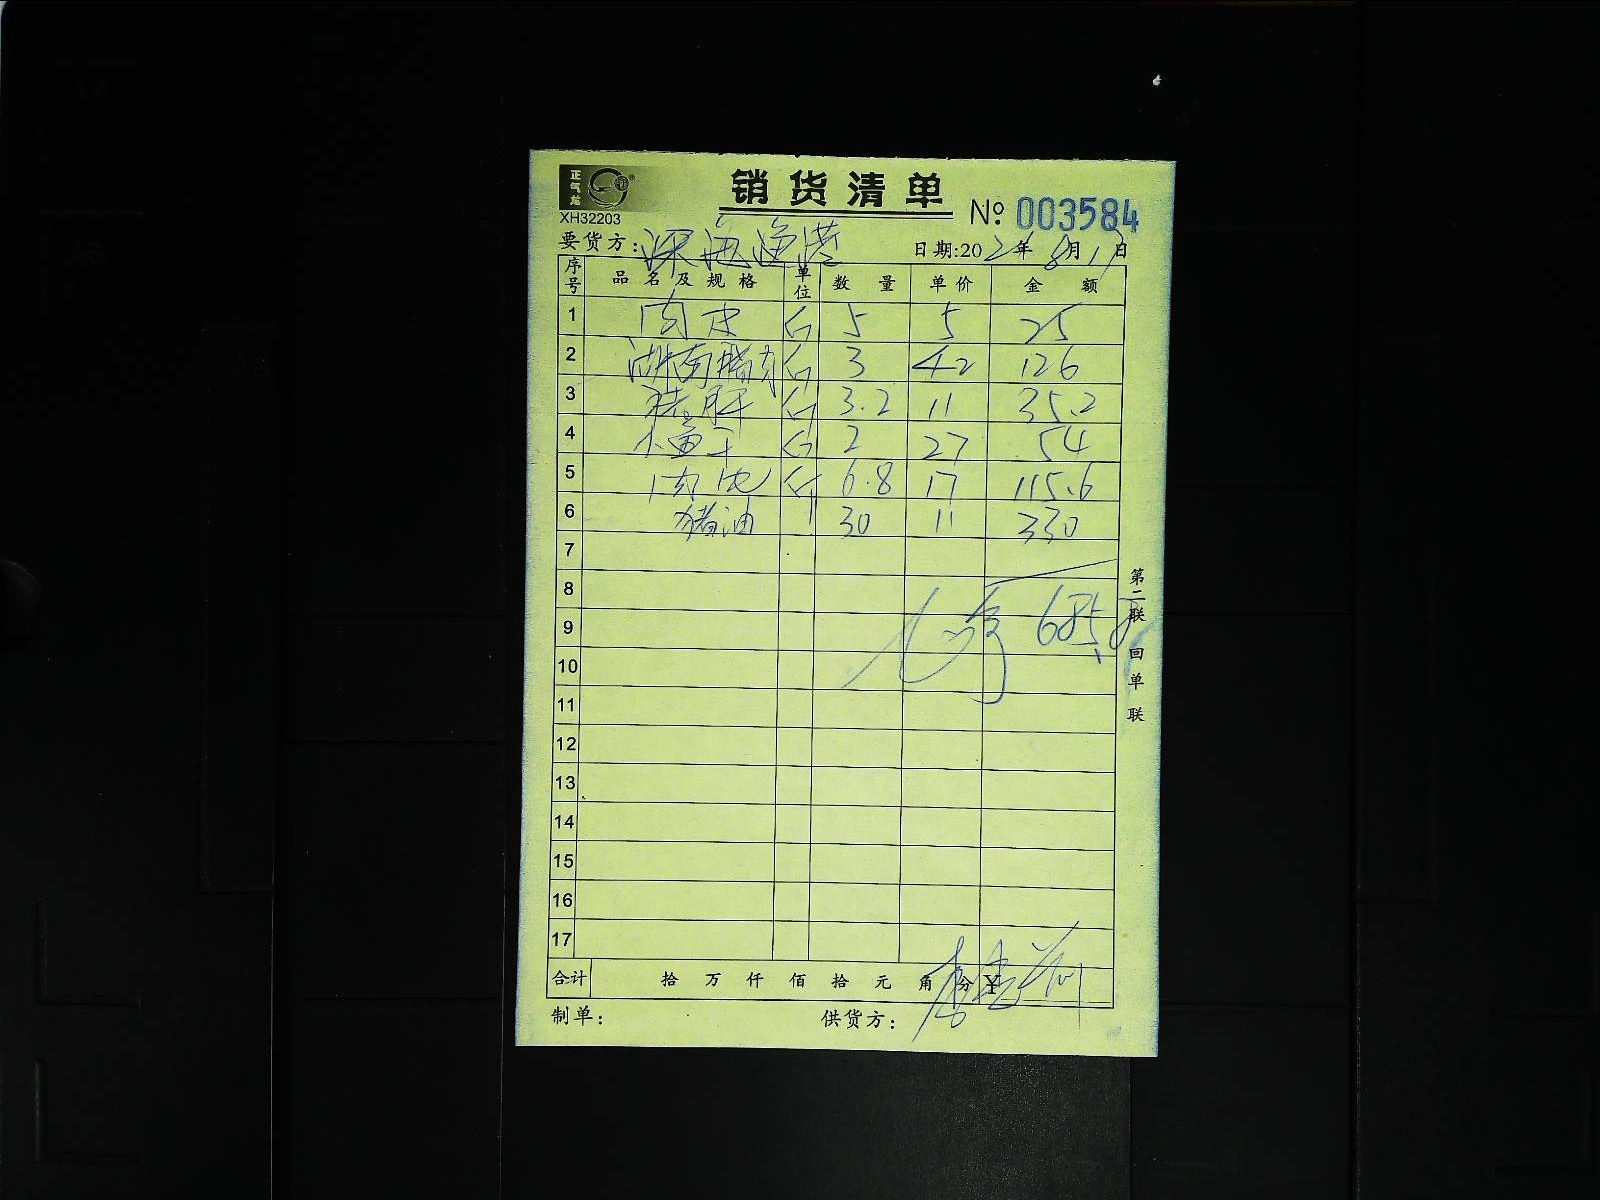 正气龙
XH32203
销货清单
№ 003584
要货方: 深海渔港 日期:202 年8月17日
序号 品名及规格 单位 数量 单价 金额
1 肉皮 斤 5 5 25
2 湖南腊肉 斤 3 42 126
3 猪肝 斤 3.2 11 35.2
4 斤 2 27 54
5 斤 6.8 17 115.6
6 猪油 30 11 330
7
8
9 685.8
10
11
12
13
14
15
16
17
合计 拾 万 仟 佰 拾 元 角 分 ¥
制单: 供货方:
第二联 回单联